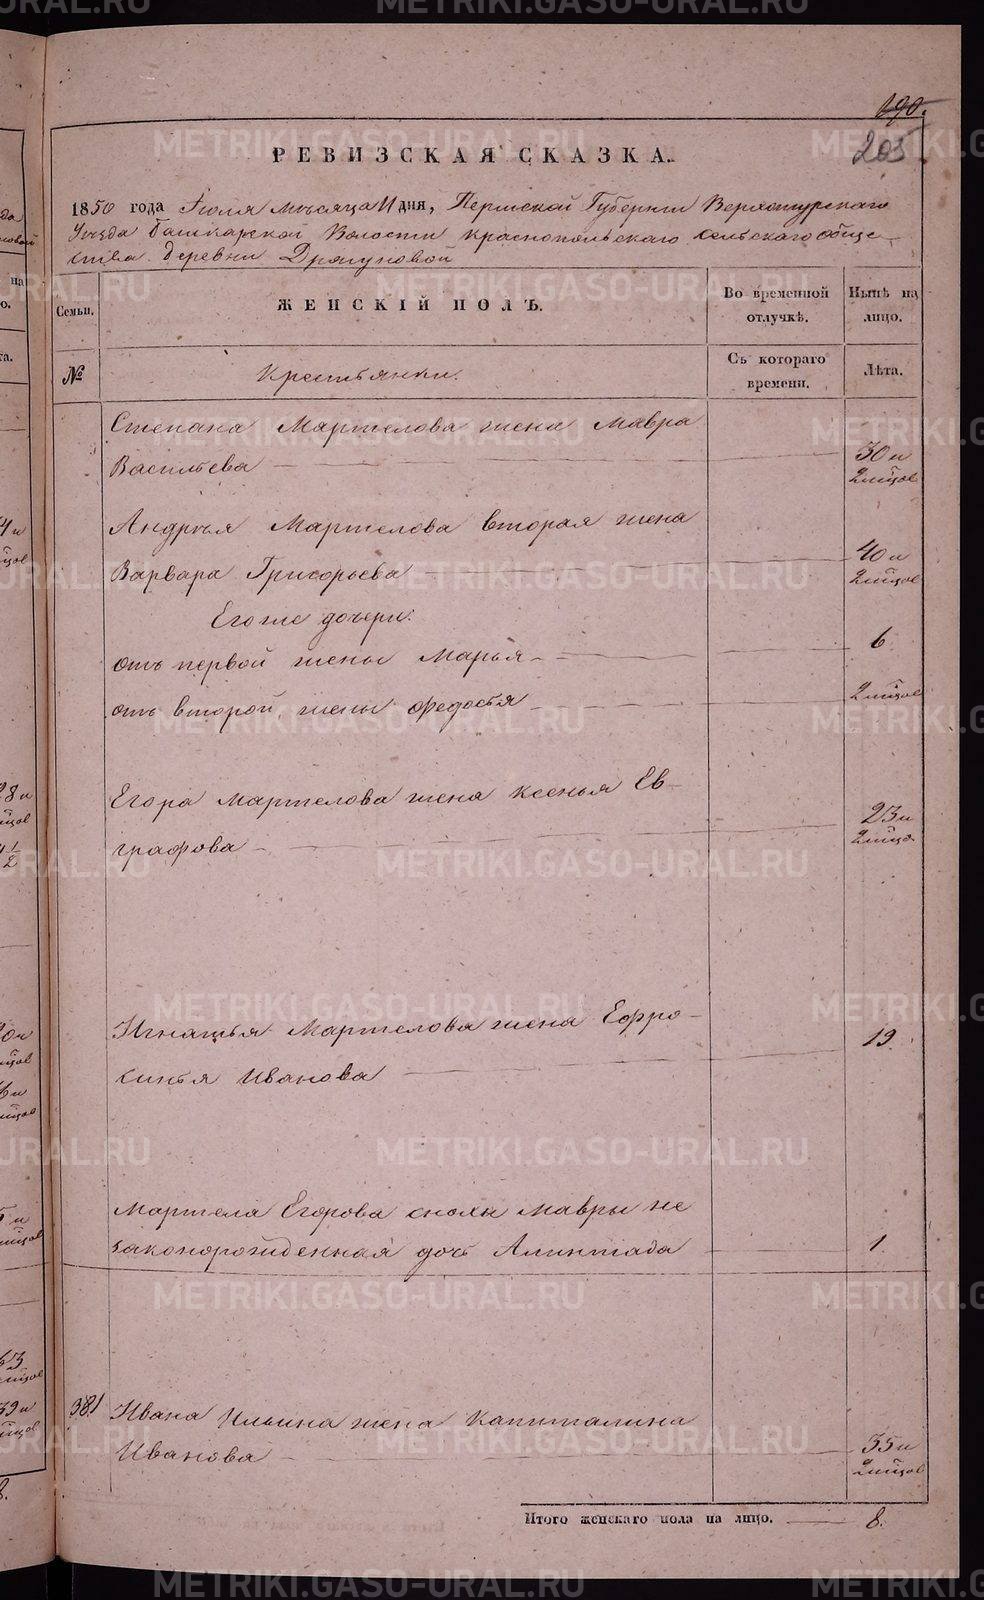 190.
205
РЕВИЗСКАЯ СКАЗКА.
1850 года Июля мѣсяца 11 дня, Пермской Губернии Верхотурскаго
Уѣзда Башкарской Волости Краснопольскаго сельскаго обще-
ства. деревни Дрягуновой
Семьи.
ЖЕНСКІЙ ПОЛЪ.
Во временной отлучкѣ.
Нынѣ на лицо.
№
Крестьянки.
Съ котораго времени.
Лѣта.
Степана Мартелова жена Мавра
Васильева
30 и
2 мцов
Андрѣя Мартелова вторая жена
Варвара Григорьева
40 и
2 мцов
Его же дочери:
отъ первой жены Марья
6
отъ второй жены Федосья
2 мцов
Егора Мартелова жена Ксенья Ев-
графова
23 и
2 мцов
Игнатья Мартелова жена Ефро-
синья Иванова
19.
Мартела Егорова снохи Мавры не
законорожденная дочь
1.
381
Ивана Ильина жена Капиталина
Иванова
35 и
2 мцов
Итого женскаго пола на лицо.
8.
METRIKI.GASO-URAL.RU